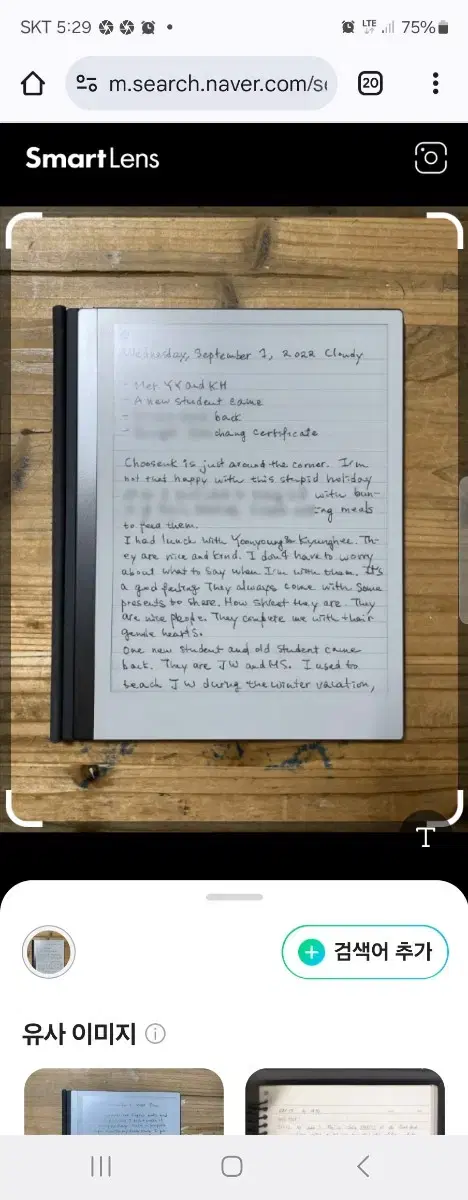 SKT 5:29
LTE
75%
m.search.naver.com/se
20
SmartLens
Wednesday, September 1, 2022 Cloudy
- Met YY and KH
- A new student came
- back
- chang certificate
Chooseok is just around the corner. I'm
not that happy with this stupid holiday
with bun-
ing meals
to feed them.
I had lunch with Yoonyoung & Kyunghee. Th-
ey are nice and kind. I don't have to worry
about what to say when I'm with them. It's
a good feeling They always come with some
presents to share. How sweet they are. They
are wise people. They comfore me with thair
gentle hearts.
One new student and old student came
back. They are JW and MS. I used to
teach JW during the winter vacation,
T
검색어 추가
유사 이미지